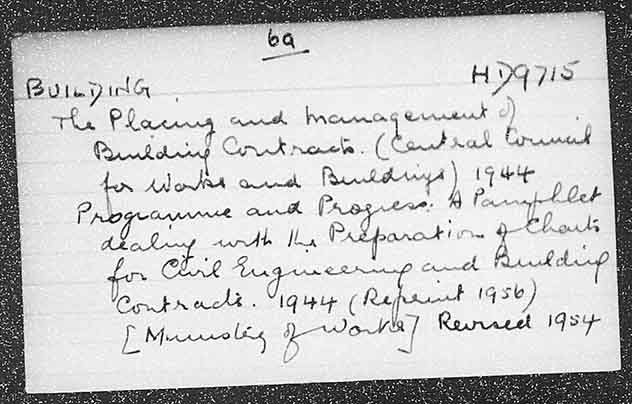 6a
BUILDING HD9715
The Placing and Management of
Building Contracts. (Central Council
for Works and Buildings) 1944
Programme and Progress. A Pamphlet
dealing with the Preparation of Charts
for Civil Engineering and Building
Contracts. 1944 (Reprint 1956)
[Ministry of Works] Revised 1954